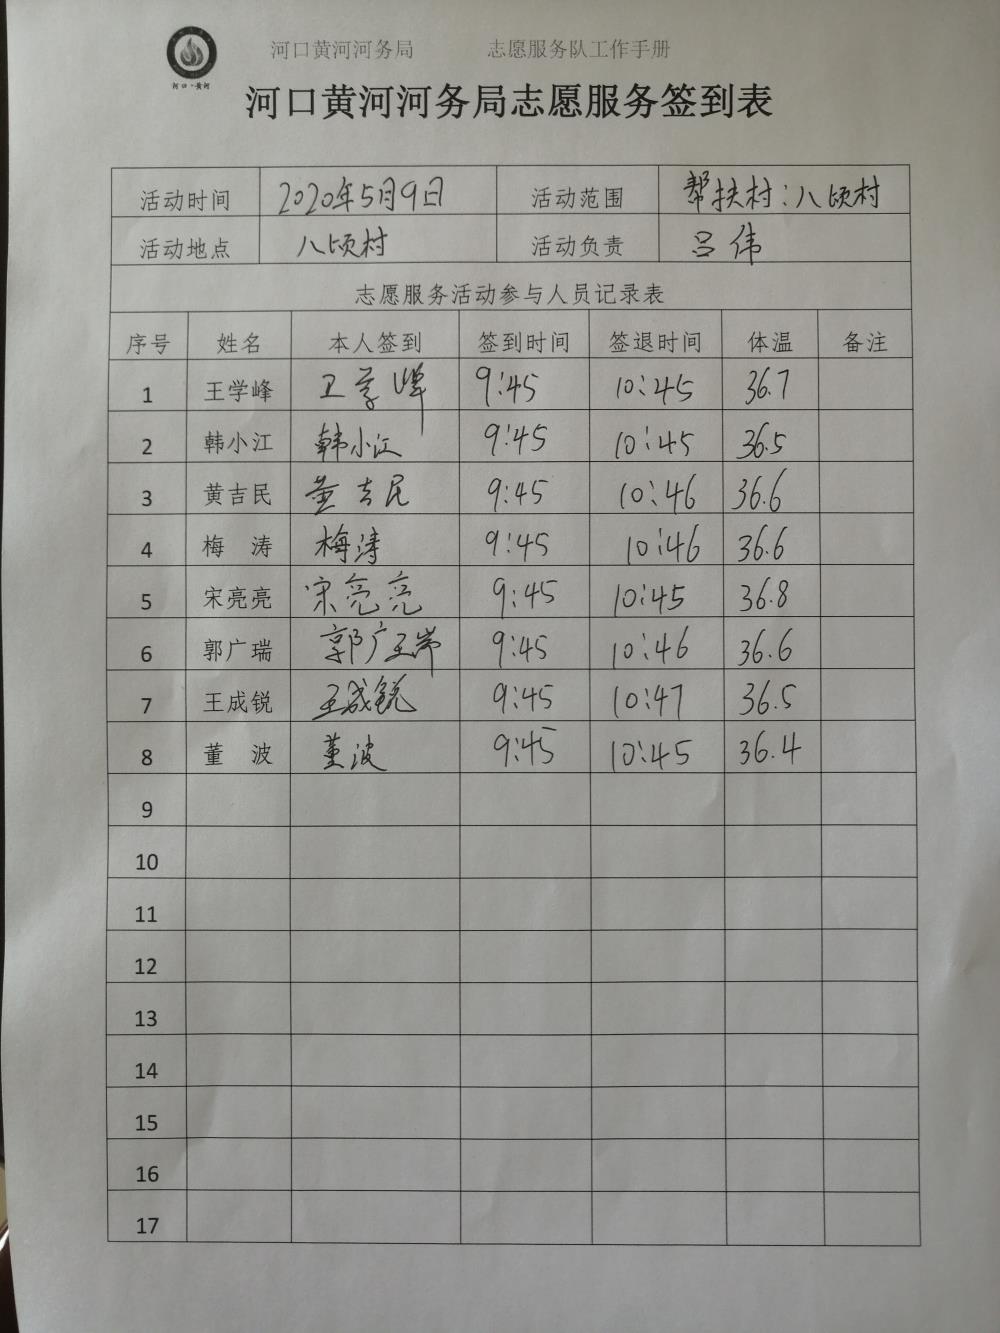 河口·黄河
河口黄河河务局 志愿服务队工作手册
河口黄河河务局志愿服务签到表
活动时间 2020年5月9日 活动范围 帮扶村:八顷村
活动地点 八顷村 活动负责 吕伟
志愿服务活动参与人员记录表
序号 姓名 本人签到 签到时间 签退时间 体温 备注
1 王学峰 王学峰 9:45 10:45 36.7
2 韩小江 韩小江 9:45 10:45 36.5
3 黄吉民 黄吉民 9:45 10:46 36.6
4 梅 涛 梅涛 9:45 10:46 36.6
5 宋亮亮 宋亮亮 9:45 10:45 36.8
6 郭广瑞 郭广瑞 9:45 10:46 36.6
7 王成锐 王成锐 9:45 10:47 36.5
8 董 波 董波 9:45 10:45 36.4
9
10
11
12
13
14
15
16
17